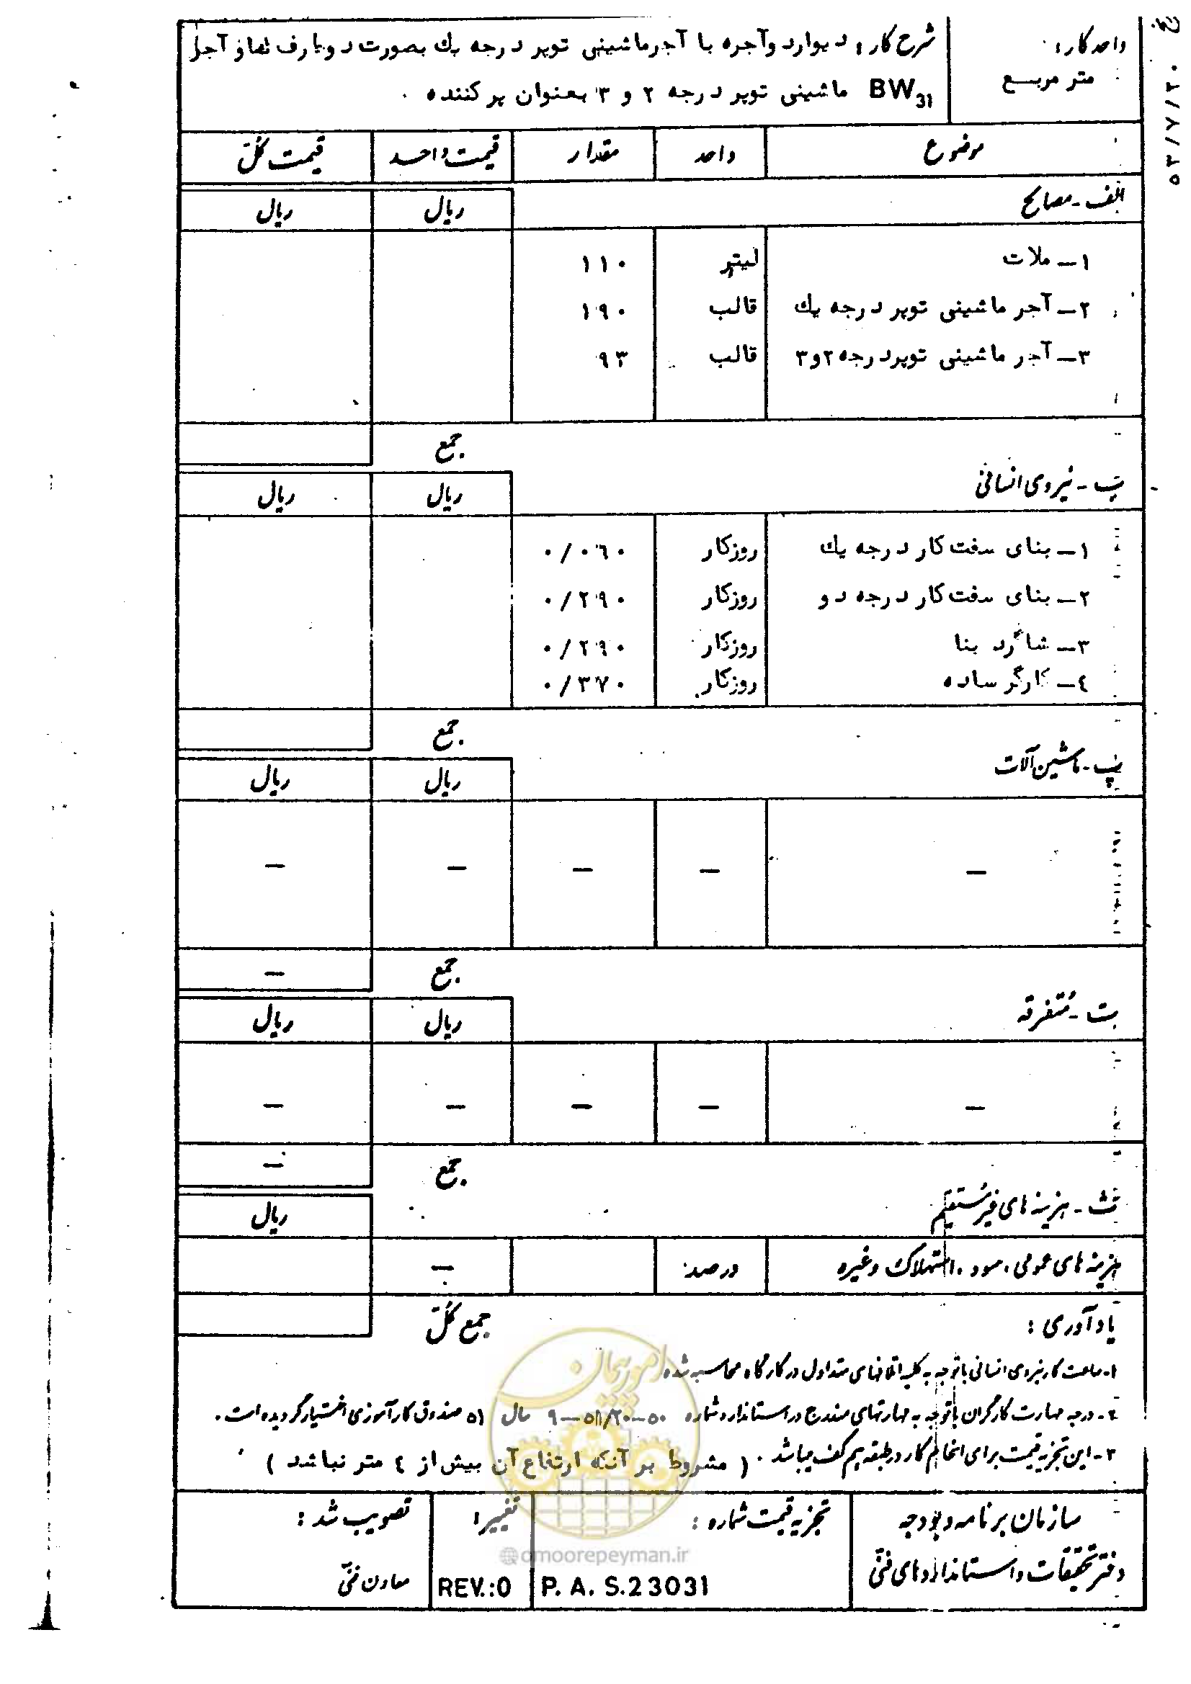 واحد کار:
متر مربع
شرح کار: دیوار دو آجره با آجر ماشینی توپر درجه یك بصورت دو طرف نما و آجر
ماشینی توپر درجه ۲ و ۳ بعنوان پر کننده . BW31
۵۳/۷/۳۰
موضوع واحد مقدار قیمت واحد قیمت کل
الف - مصالح ریال ریال
۱ – ملات لیتر ۱۱۰
۲ – آجر ماشینی توپر درجه یك قالب ۱۹۰
۳ – آجر ماشینی توپر درجه ۲ و ۳ قالب ۹۳
جمع
ب - نیروی انسانی ریال ریال
۱ – بنای سفت کار درجه یك روزکار ۰/۰٦۰
۲ – بنای سفت کار درجه دو روزکار ۰/۲۹۰
۳ – شاگرد بنا روزکار ۰/۲۹۰
٤ – کارگر ساده روزکار ۰/۳۷۰
جمع
پ - ماشین آلات ریال ریال
– – – – –
جمع –
ت - متفرقه ریال ریال
– – – – –
جمع –
ث - هزینه های غیر مستقیم ریال
هزینه های عمومی ، سود ، استهلاک و غیره درصد –
جمع کل
یادآوری :
۱ - ساعت کار نیروی انسانی با توجه به کلیه اتلافهای متداول در کارگاه محاسبه شده
۲ - درجه مهارت کارگران با توجه به مهارتهای مندرج در استاندارد شماره ۵۰–۵۱/۲۰–۹ سال ۵۱ صندوق کارآموزی اختیار گردیده است .
۳ - این تجزیه قیمت برای انجام کار در طبقه هم کف میباشد . ( مشروط بر آنکه ارتفاع آن بیش از ٤ متر نباشد )
امور پیمان
@omoorepeyman.ir
سازمان برنامه و بودجه
دفتر تحقیقات و استانداردهای فنی
تجزیه قیمت شماره :
P. A. S.23031
تغییر:
REV.:0
تصویب شد :
معاون فنی